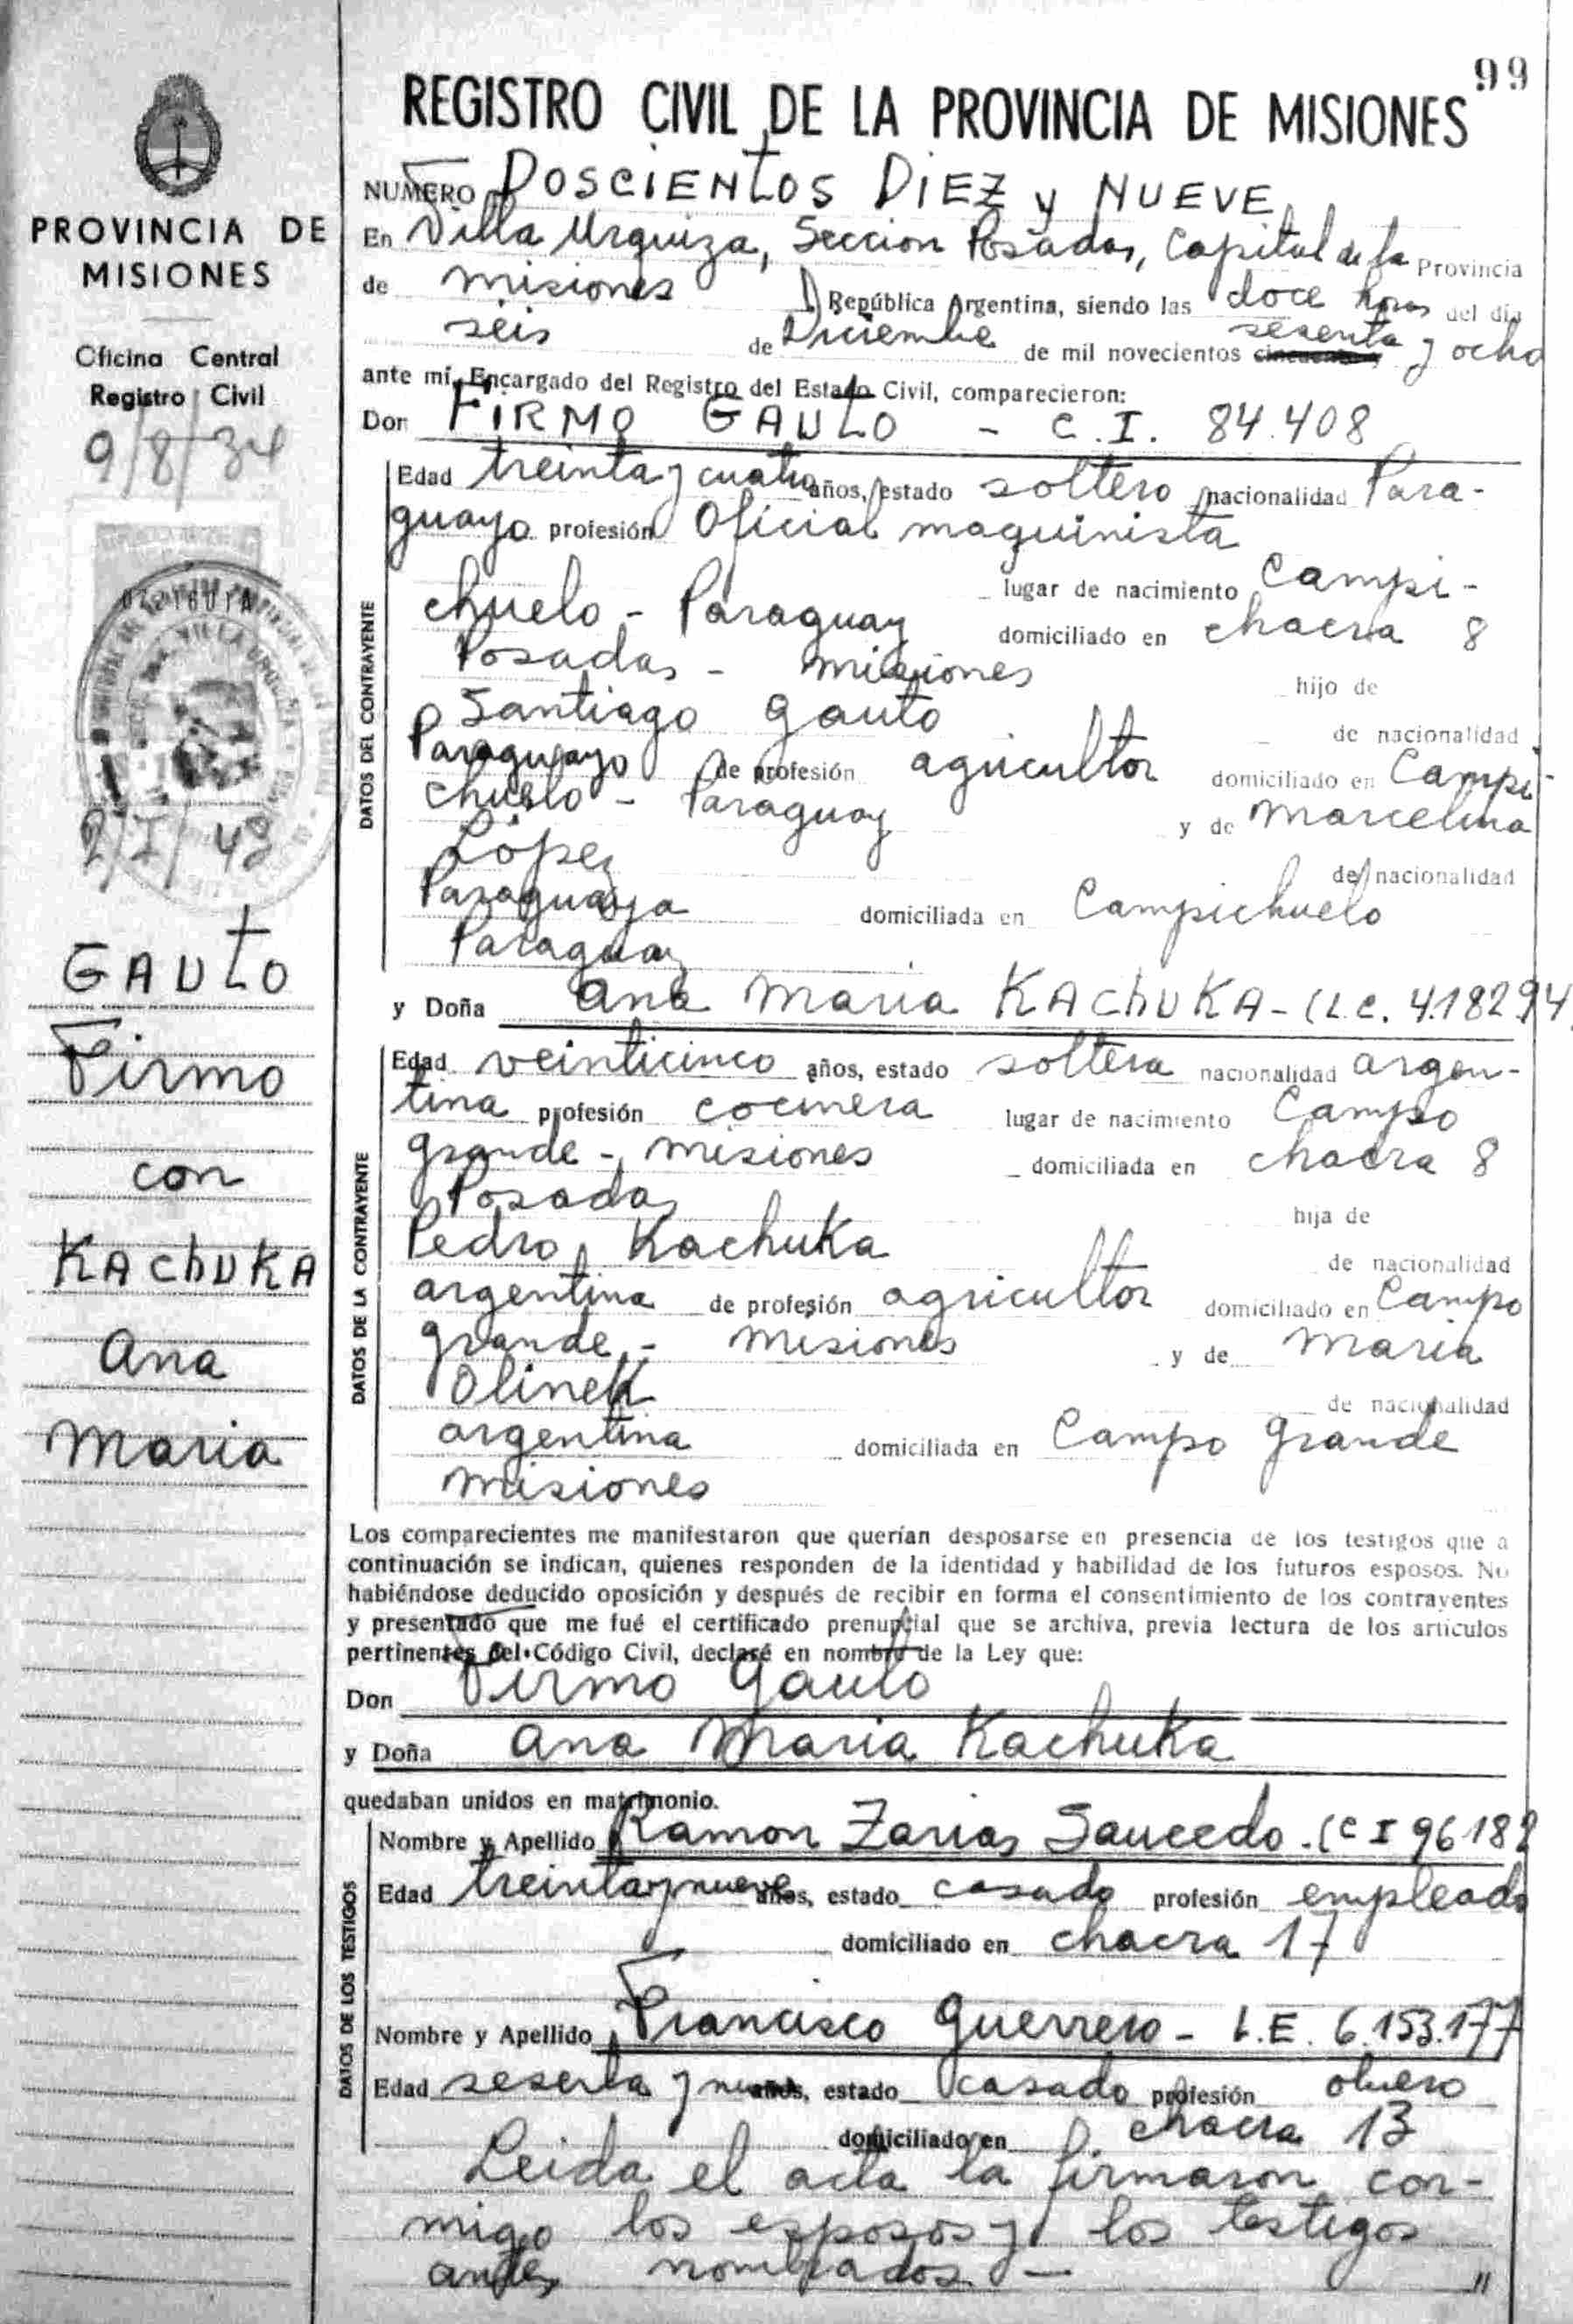 99
REGISTRO CIVIL DE LA PROVINCIA DE MISIONES
PROVINCIA DE
MISIONES
Oficina Central
Registro Civil
9/8/34
2/I/43
GAUTO
Firmo
con
KAChUKA
Ana
Maria
NUMERO DOSCIENtOS DIEZ y NUEVE
En Villa Urquiza, Seccion Posadas, Capital de la Provincia
de misiones República Argentina, siendo las doce horas del dia
seis de Diciembre de mil novecientos cincuenta sesenta y ocho
ante mí, Encargado del Registro del Estado Civil, comparecieron:
Don FIRMO GAUtO - C.I. 84.408
DATOS DEL CONTRAYENTE
Edad treinta y cuatro años, estado soltero nacionalidad Para-
guayo profesión Oficial maquinista
lugar de nacimiento Campi-
chuelo - Paraguay domiciliado en chacra 8
Posadas - misiones hijo de
Santiago Gauto de nacionalidad
Paraguayo de profesión agricultor domiciliado en Campi-
chuelo - Paraguay y de Marcelina
López de nacionalidad
Paraguaya domiciliada en Campichuelo
Paraguay
y Doña Ana Maria KAChUKA - (L.C. 4.18294
DATOS DE LA CONTRAYENTE
Edad veinticinco años, estado soltera nacionalidad argen-
tina profesión cocinera lugar de nacimiento Campo
grande - misiones domiciliada en chacra 8
Posadas hija de
Pedro Kachuka de nacionalidad
argentina de profesión agricultor domiciliado en Campo
grande - misiones y de Maria
Olinek de nacionalidad
argentina domiciliada en Campo grande
misiones
Los comparecientes me manifestaron que querían desposarse en presencia de los testigos que a
continuación se indican, quienes responden de la identidad y habilidad de los futuros esposos. No
habiéndose deducido oposición y después de recibir en forma el consentimiento de los contrayentes
y presentado que me fué el certificado prenupcial que se archiva, previa lectura de los artículos
pertinentes del Código Civil, declaré en nombre de la Ley que:
Don Firmo Gauto
y Doña Ana Maria Kachuka
quedaban unidos en matrimonio.
DATOS DE LOS TESTIGOS
Nombre y Apellido Ramon Zarias Saucedo - (C I 96182
Edad treinta y nueve años, estado casado profesión empleado
domiciliado en chacra 17
Nombre y Apellido Francisco Guerrero - L.E. 6.153.177
Edad sesenta y años, estado casado profesión obrero
domiciliado en chacra 13
Leida el acta la firmaron con-
migo los esposos y los testigos
antes nombrados -